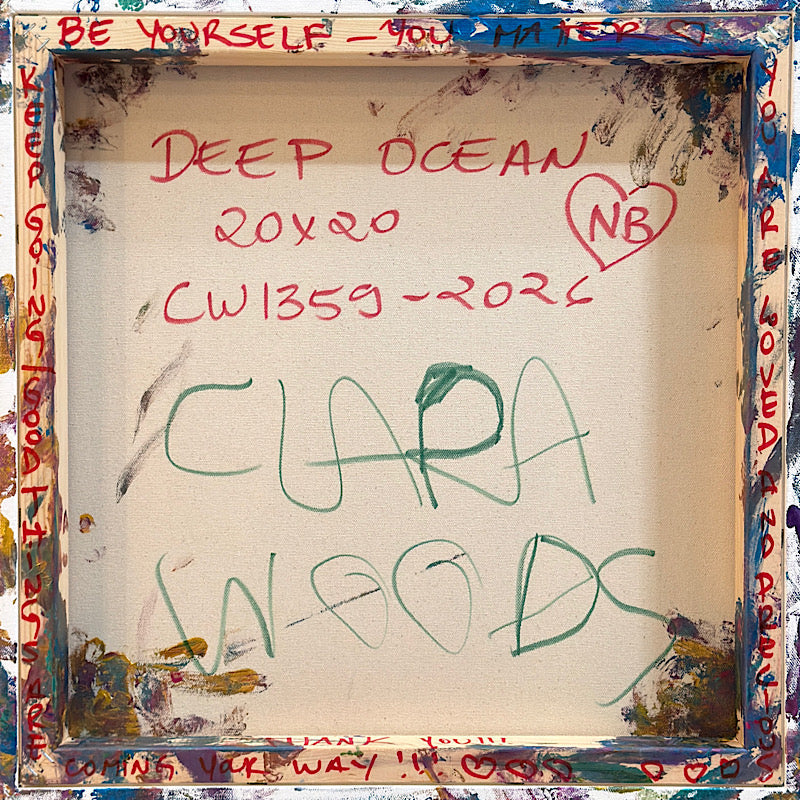 BE YOURSELF – YOU MATTER ♡
DEEP OCEAN
20x20
NB
CW1359-2026
CLARA
WOODS
KEEP GOING / GOOD THINGS ARE
COMING YOUR WAY!!! ♡♡♡
YOU ARE LOVED AND PRECIOUS
♡♡♡
THANK YOU!!!